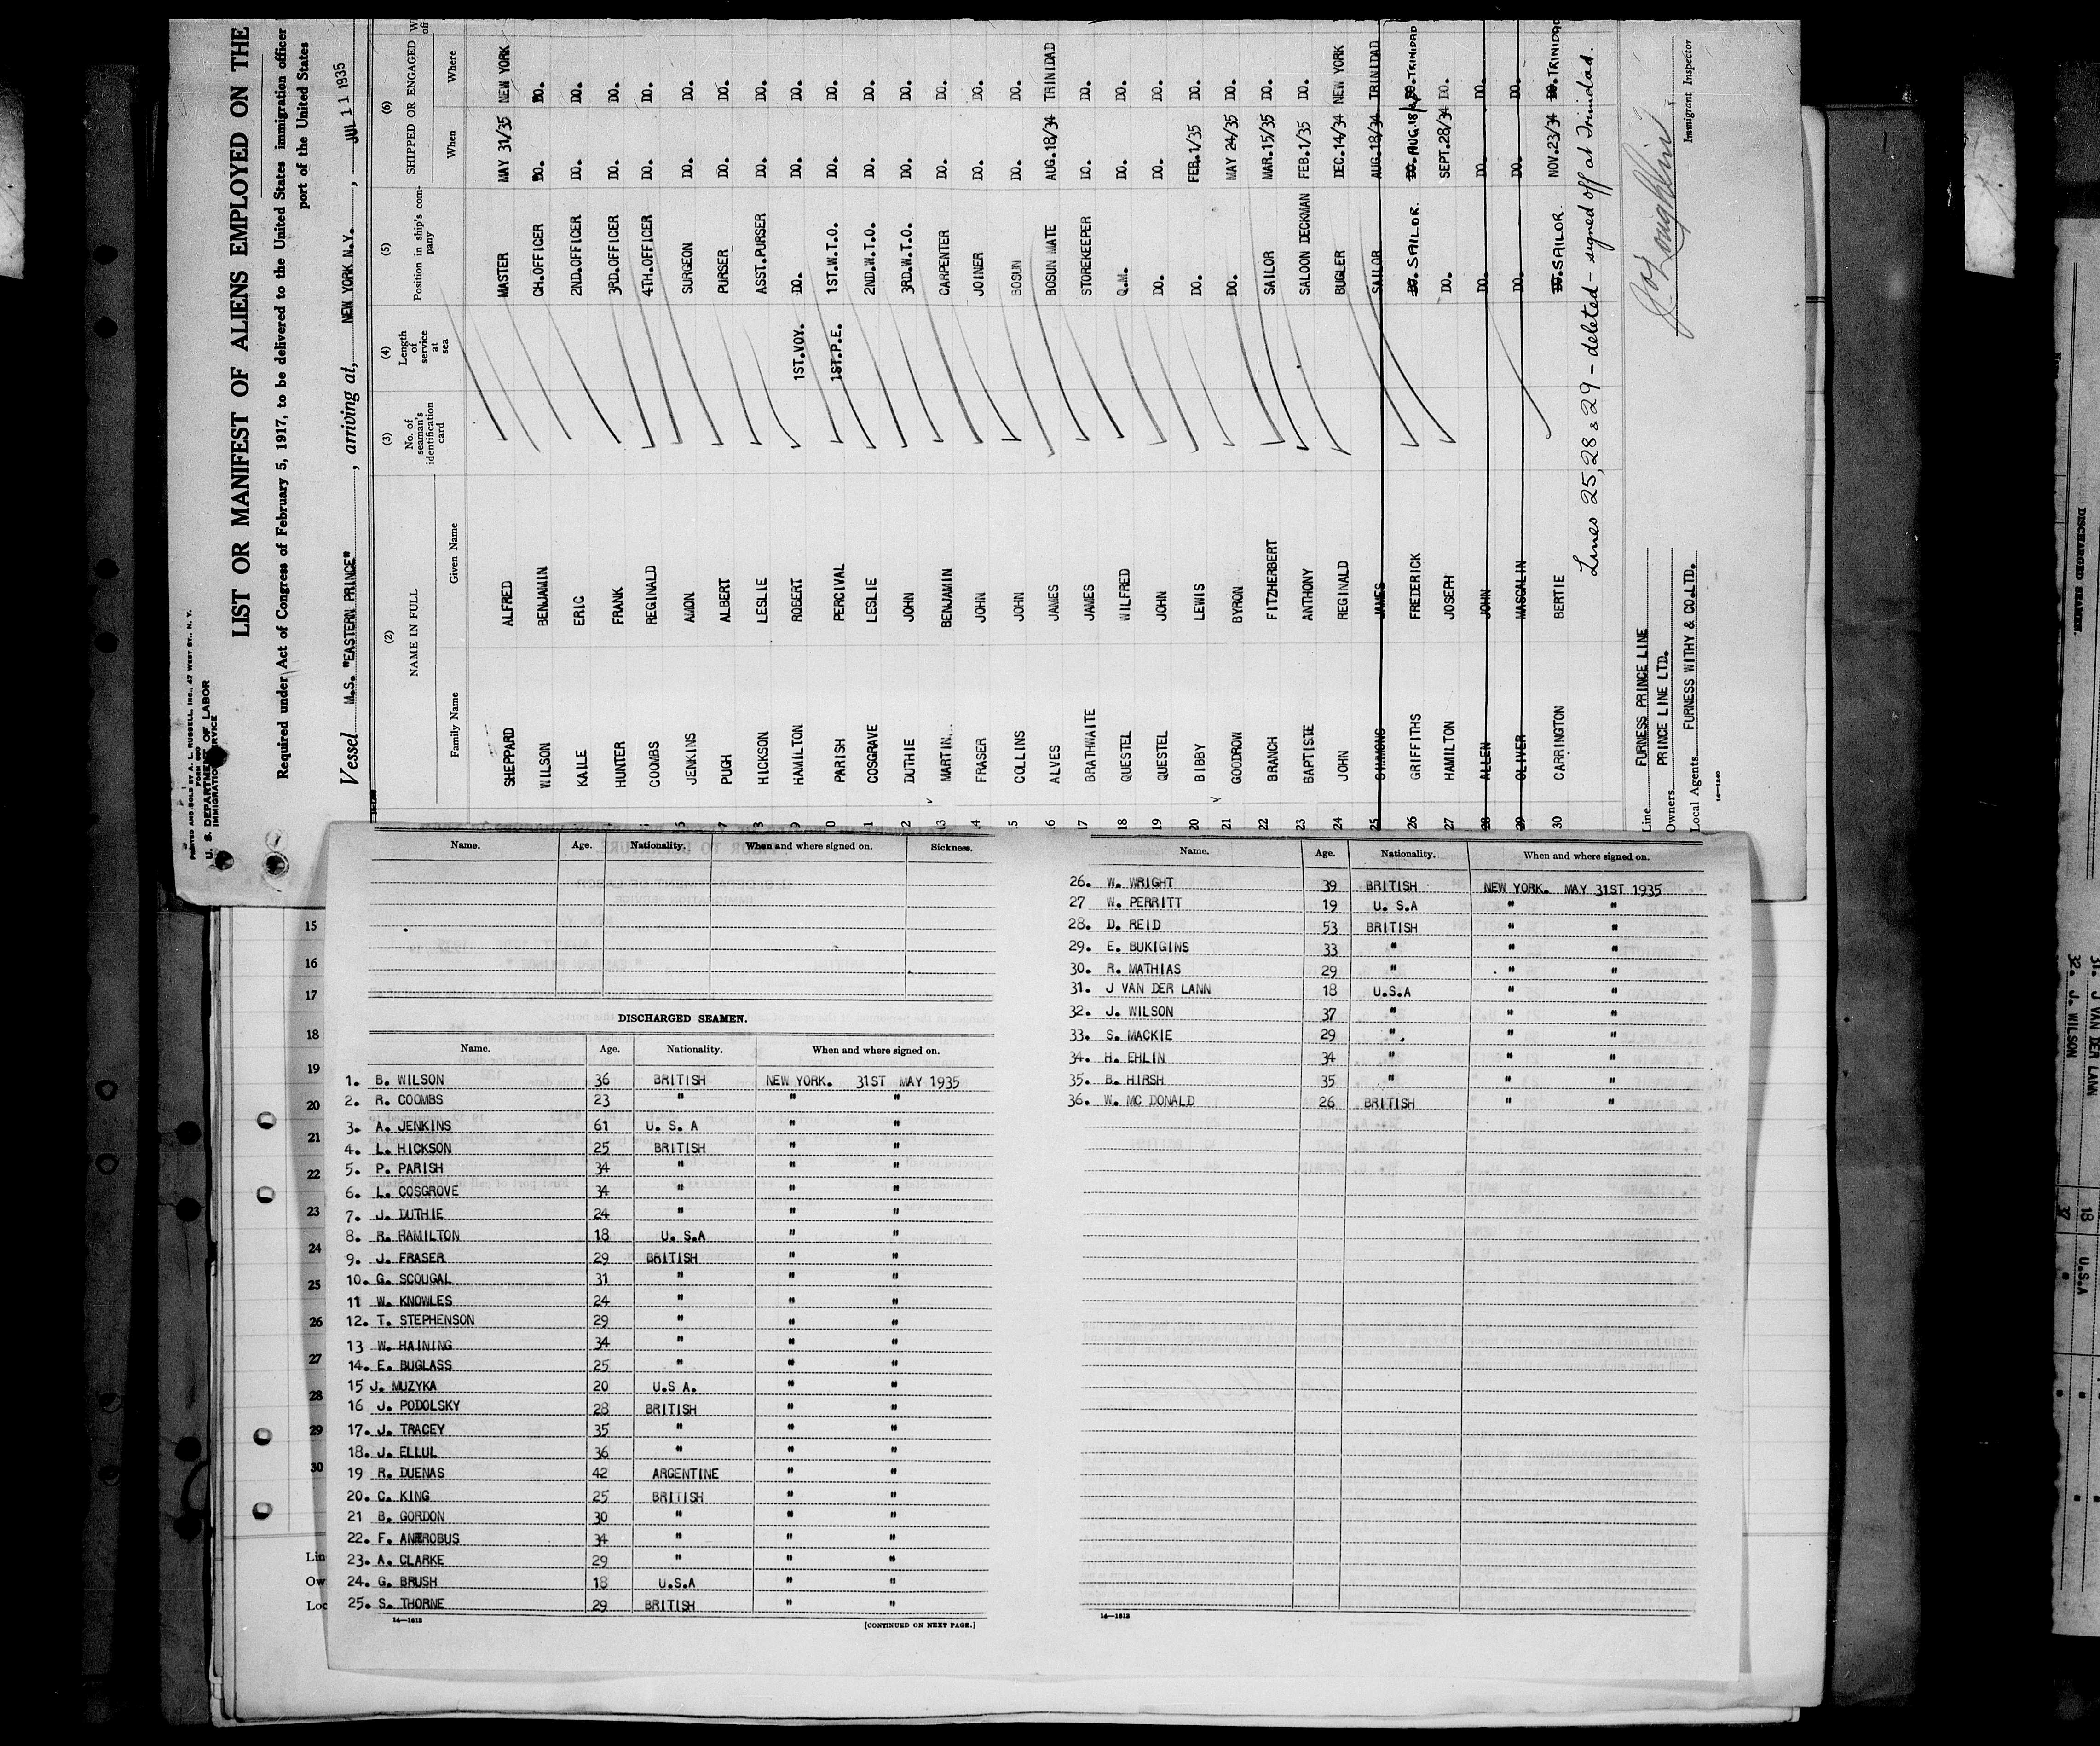 PRINTED AND SOLD BY A. L. RUSSELL, INC., 47 WEST ST., N. Y.
FORM 680
U. S. DEPARTMENT OF LABOR
IMMIGRATION SERVICE
LIST OR MANIFEST OF ALIENS EMPLOYED ON THE
Required under Act of Congress of February 5, 1917, to be delivered to the United States immigration officer
port of the United States
Vessel M.S. "EASTERN PRINCE", arriving at, NEW YORK N.Y., JUL 11 1935
(2) (3) (4) (5) (6)
NAME IN FULL No. of seaman's identification card Length of service at sea Position in ship's company SHIPPED OR ENGAGED
Family Name Given Name When Where
SHEPPARD ALFRED MASTER MAY 31/35 NEW YORK
WILSON BENJAMIN CH.OFFICER DO. DO.
KAILE ERIC 2ND.OFFICER DO. DO.
HUNTER FRANK 3RD.OFFICER DO. DO.
COOMBS REGINALD 4TH.OFFICER DO. DO.
5 JENKINS AMON SURGEON DO. DO.
PUGH ALBERT PURSER DO. DO.
8 HICKSON LESLIE ASST.PURSER DO. DO.
9 HAMILTON ROBERT 1ST.VOY. DO. DO. DO.
0 PARISH PERCIVAL 1ST.P.E. 1ST.W.T.O. DO. DO.
1 COSGRAVE LESLIE 2ND.W.T.O. DO. DO.
2 DUTHIE JOHN 3RD.W.T.O. DO. DO.
3 MARTIN. BENJAMIN CARPENTER DO. DO.
4 FRASER JOHN JOINER DO. DO.
5 COLLINS JOHN BOSUN DO. DO.
16 ALVES JAMES BOSUN MATE AUG.18/34 TRINIDAD
17 BRATHWAITE JAMES STOREKEEPER DO. DO.
18 QUESTEL WILFRED Q.M. DO. DO.
19 QUESTEL JOHN DO. DO. DO.
20 BIBBY LEWIS DO. FEB.1/35 DO.
21 GOODROW BYRON DO. MAY 24/35 DO.
22 BRANCH FITZHERBERT SAILOR MAR.15/35 DO.
23 BAPTISTE ANTHONY SALOON DECKMAN FEB.1/35 DO.
24 JOHN REGINALD BUGLER DEC.14/34 NEW YORK
25 SIMMONS JAMES SAILOR AUG.18/34 TRINIDAD
26 GRIFFITHS FREDERICK DO. SAILOR. DO. AUG.18/34 DO. TRINIDAD
27 HAMILTON JOSEPH DO. SEPT.28/34 DO.
28 ALLEN JOHN DO. DO. DO.
29 OLIVER MASCALIN DO. DO. DO.
30 CARRINGTON BERTIE DO. SAILOR. NOV.23/34 DO. TRINIDAD
Lines 25, 28 & 29 - deleted - signed off at Trinidad.
Line FURNESS PRINCE LINE
Owners PRINCE LINE LTD.
Local Agents FURNESS WITHY & CO.LTD.
Immigrant Inspector
14—1240
Name. Age. Nationality. When and where signed on. Sickness.
DISCHARGED SEAMEN.
Name. Age. Nationality. When and where signed on.
1. B. WILSON 36 BRITISH NEW YORK. 31ST MAY 1935
2. R. COOMBS 23 " " "
3. A. JENKINS 61 U. S. A " "
4. L. HICKSON 25 BRITISH " "
5. P. PARISH 34 " " "
6. L. COSGROVE 34 " " "
7. J. DUTHIE 24 " " "
8. R. HAMILTON 18 U. S.A " "
9. J. FRASER 29 BRITISH " "
10. G. SCOUGAL 31 " " "
11 W. KNOWLES 24 " " "
12. T. STEPHENSON 29 " " "
13 W. HAINING 34 " " "
14. E. BUGLASS 25 " " "
15 J. MUZYKA 20 U.S A. " "
16 J. PODOLSKY 28 BRITISH " "
17. J. TRACEY 35 " " "
18. J. ELLUL 36 " " "
19 R. DUENAS 42 ARGENTINE " "
20. C. KING 25 BRITISH " "
21 B. GORDON 30 " " "
22. F. ANTROBUS 34 " " "
23. A. CLARKE 29 " " "
24. G. BRUSH 18 U.S.A " "
25. S. THORNE 29 BRITISH " "
14—1612
[CONTINUED ON NEXT PAGE.]
Name. Age. Nationality. When and where signed on.
26. W. WRIGHT 39 BRITISH NEW YORK. MAY 31ST 1935
27 W. PERRITT 19 U. S.A " "
28. D. REID 53 BRITISH " "
29. E. BUKIGINS 33 " " "
30. R. MATHIAS 29 " " "
31. J VAN DER LANN 18 U.S.A " "
32. J. WILSON 37 " " "
33. S. MACKIE 29 " " "
34. H. EHLIN 34 " " "
35. B. HIRSH 35 " " "
36. W. MC DONALD 26 BRITISH " "
14—1612
15
16
17
18
19
20
21
22
23
24
25
26
27
28
29
30
Lin
Ow
Loc
DISCHARGED SEAMEN.
31. J VAN DER LANN 18 U.S.A
32. J. WILSON 37 "